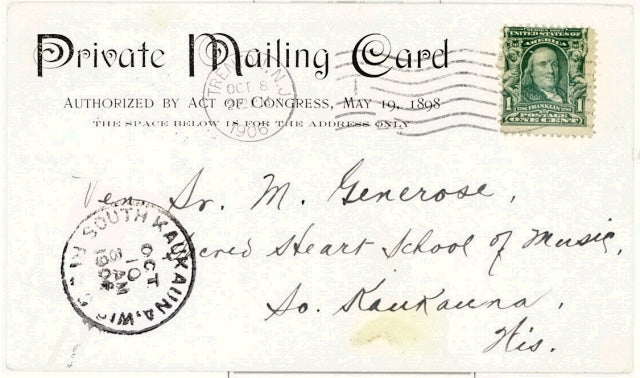 Private Mailing Card
AUTHORIZED BY ACT OF CONGRESS, MAY 19, 1898
THE SPACE BELOW IS FOR THE ADDRESS ONLY
TRENTON, N.J.
OCT 8
1906
UNITED STATES OF
AMERICA
1 FRANKLIN 1
POSTAGE
ONE CENT
Ven. Sr. M. Generose,
Sacred Heart School of Music,
So. Kaukauna,
Wis.
SOUTH KAUKAUNA, WIS.
OCT
10